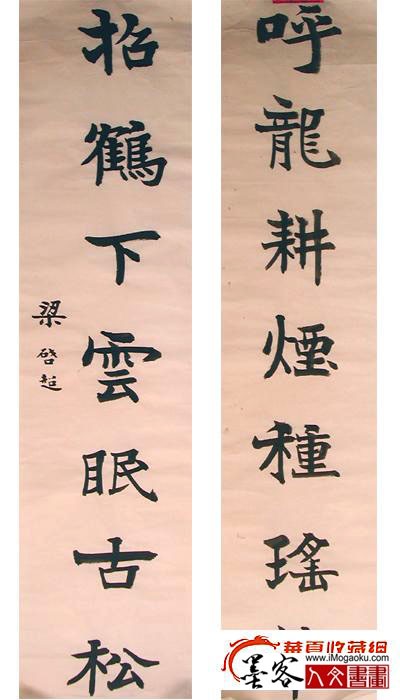 呼龍耕煙種瑤
招鶴下雲眠古松
梁啓超
華夏收藏網
www.iMogaoku.com
墨客
人文書畫